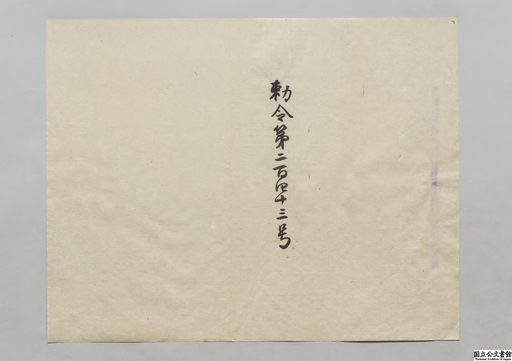 勅令第二百四十三号
国立公文書館
National Archives of Japan